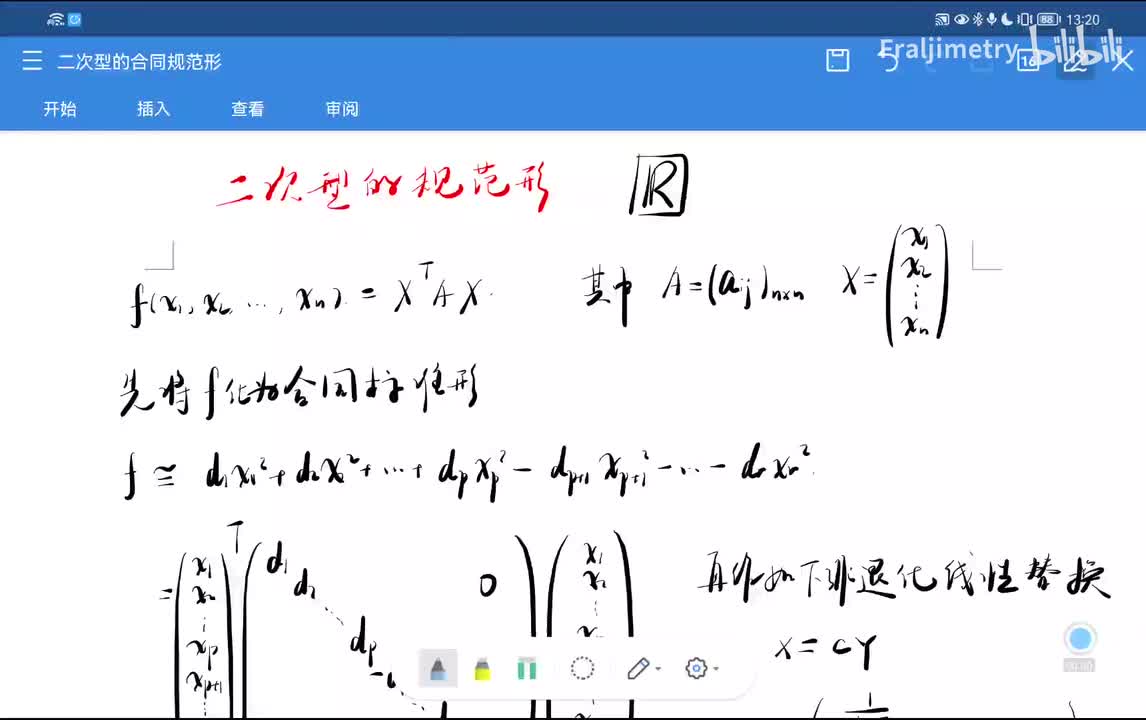 88 13:20
二次型的合同规范形
Fraljimetry bilibili
16
开始 插入 查看 审阅
二次型的规范形 ℝ
f(x₁, x₂, ⋯, xₙ) = XᵀAX. 其中 A=(aᵢⱼ)ₙₓₙ X = (x₁ x₂ ⋮ xₙ)
先将f化为合同标准形
f ≅ d₁x₁² + d₂x₂² + ⋯ + dₚxₚ² − dₚ₊₁xₚ₊₁² − ⋯ − dᵣxᵣ².
= (x₁ x₂ ⋮ xₚ xₚ₊₁ ⋮)ᵀ (d₁ d₂ ⋱ dₚ 0) (x₁ x₂ ⋮)
再作如下非退化线性替换
X = CY